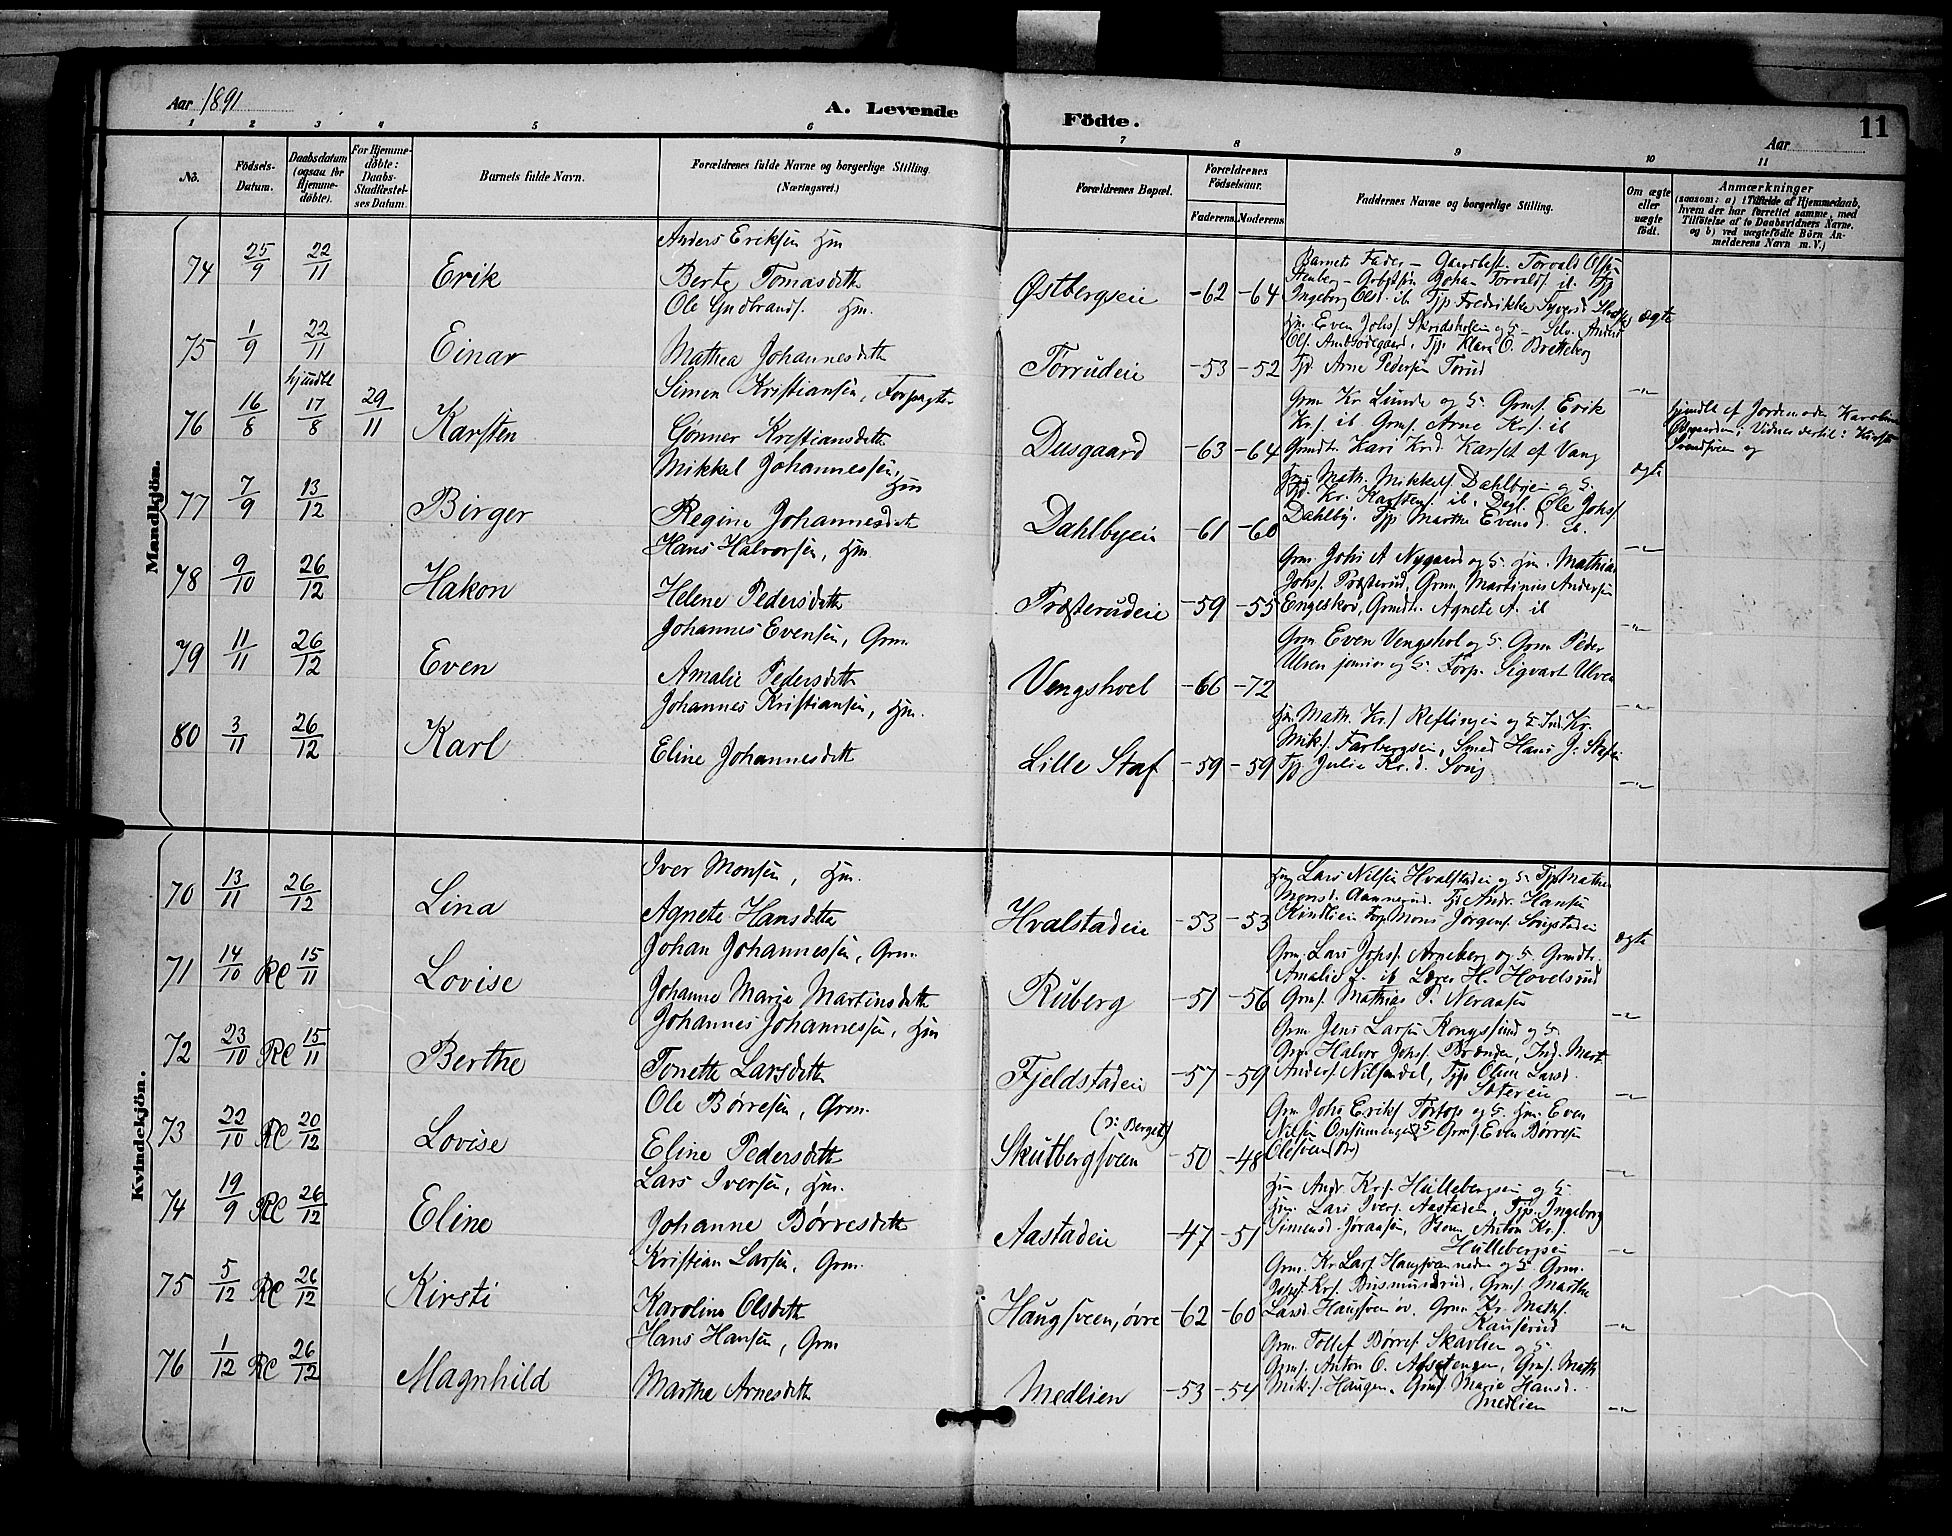 Aar 1891
A. Levende
Födte.
11
Aar
1 2 3 4 5 6 7 8 9 10 11
No.
Födsels-
Datum.
Daabsdatum
(ogsaa for
Hjemme-
döbte).
For Hjemme-
döbte:
Daabs-
Stadfæstel-
ses Datum.
Barnets fulde Navn.
Forældrenes fulde Navne og borgerlige Stilling.
(Næringsvei.)
Forældrenes Bopæl.
Forældrenes
Födselsaar.
Faderens. Moderens.
Faddernes Navne og borgerlige Stilling.
Om ægte
eller
uægte
födt.
Anmærkninger
(saasom: a) i Tilfælde af Hjemmedaab,
hvem der har forrettet samme, med
Tilföielse af to Daabsvidners Navne,
og b) ved uægtefödte Börn An-
melderens Navn m. V.)
Mandkjön.
74 25/9 22/11 Erik
Anders Eriksen Hm
Berte Tomasdatt
Østbergseie -62 -64
Barnets Fader - Gaardbest. Torvald Ols.
Stenberg - Johan Torvalds. ib. Pjg
Ingeborg Olsd. ib. Pjg. Fredrikke Syversd.
ægte
75 1/9 22/11 Einar
Ole Gudbrands. Hm.
Mathea Johannesdatt
Torrudeie -53 -52
Hm. Even Johs.
Klara O. Bretteberg
Arne Pedersen Torud
-"-
76 16/8 hjmdbt 17/8 29/11 Karsten
Simen Kristiansen, Forpagter
Gønner Kristiansdatt
Dusgaard -63 -64
Grm Kr Lunde og H. Grms. Erik
Krs. ib. Grms. Arne Krs. ib
Grmdtr. Kari Krd. Karset af Vang
ægte
hjmdbt af Jordemoder Karoline
Vidner dertil:
77 7/9 13/12 Birger
Mikkel Johannessen, Hm
Regine Johannesdatt
Dahlbyeie -61 -60
Hm. Math. Mikkels. Dahlbyeie og H.
Kr. Karstens. ib. Ole Johs.
Dahlby. Pjg Marthe Evensd. ib.
-"-
78 9/10 26/12 Hakon
Hans Halvorsen, Hm.
Helene Pedersdatt
Præsterudeie -59 -55
Grm. Johs A Nygaard og H. Hm. Mathias
Johs. Præsterud, Grm. Martinius Andersen
Engeskov, Grmdtr. Agnete A. ib
-"-
79 11/11 26/12 Even
Johannes Evensen, Grm.
Amalie Pedersdatt
Vengshoel -66 -72
Grm Even Vengshol og H. Grm Peder
Ulven junior og H. Forp. Sigvart Ulven
-"-
80 3/11 26/12 Karl
Johannes Kristiansen, Hm.
Eline Johannesdatt
Lille Staf -59 -59
Hm. Math. Krs. Reflingeie og H. Ind. Kr.
Miks. Farbergseie, Smed Hans J.
Pjg Julie Kr.d. Song
-"-
Kvindekjön.
70 13/11 26/12 Lina
Iver Monsen, Hm.
Agnete Hansdatt
Hvalstadeie -53 -53
Hm. Lars Nilsen Hvalstadeie og H. Pjg Mathea
Monsd. Aannerud. Andr. Hansen
Kindlien Forp. Mons Jørgens.
ægte
71 14/10 RC 15/11 Lovise
Johan Johannessen, Grm.
Johanne Marie Martinsdatt
Ruberg -51 -56
Grm. Lars Johs. Arneberg og H. Grmdtr.
Amalie L. ib Lærer H. Hovelsrud
Grms. Mathias P. Neraasen
-"-
72 23/10 RC 15/11 Berthe
Johannes Johannessen, Hm
Tonette Larsdatt
Fjeldstadeie -57 -59
Grm Jens Larsen Kongslund og H.
Grm. Halvor Johs. Brænden, Ind. Mart.
Anders. Nilsendal, Pjg Oline Larsd.
-"-
73 22/10 RC 20/12 Lovise
Ole Børresen, Grm.
Eline Pedersdatt
(ɔ: Berget)
Skutbergsveen -50 -48
Grm. Johs Eriks. Tørtop og H. Hm. Even
Nilsen og H. Grms. Even Børresen
-"-
74 19/9 RC 26/12 Eline
Lars Iversen, Hm.
Johanne Børresdatt
Aastadeie -47 -51
Hm Andr. Krs. Hullebergseie og H.
Hm. Lars Ivers. Aastadeie, Pjg. Ingeborg
Simensd. Joraasen, Anton Krs.
Hullebergseie
-"-
75 5/12 RC 26/12 Kirsti
Kristian Larsen, Grm.
Karoline Olsdatt
Haugsveen, øvre -62 -60
Grm. Kr Lars. Haugsveen nedre og H. Grm.
Krs. Bismundrud, Grms. Marthe
Larsd. Haugsveen øv. Grm. Kr. Maths.
Kauserud
-"-
76 1/12 RC 26/12 Magnhild
Hans Hansen, Grm
Marthe Arnesdatt
Medlien -53 -54
Grm. Tollef Børres. Skavlien og H.
Grms. Anton O. Grms. Math
Miks. Haugen. Marie Hansd.
Medlien
-"-